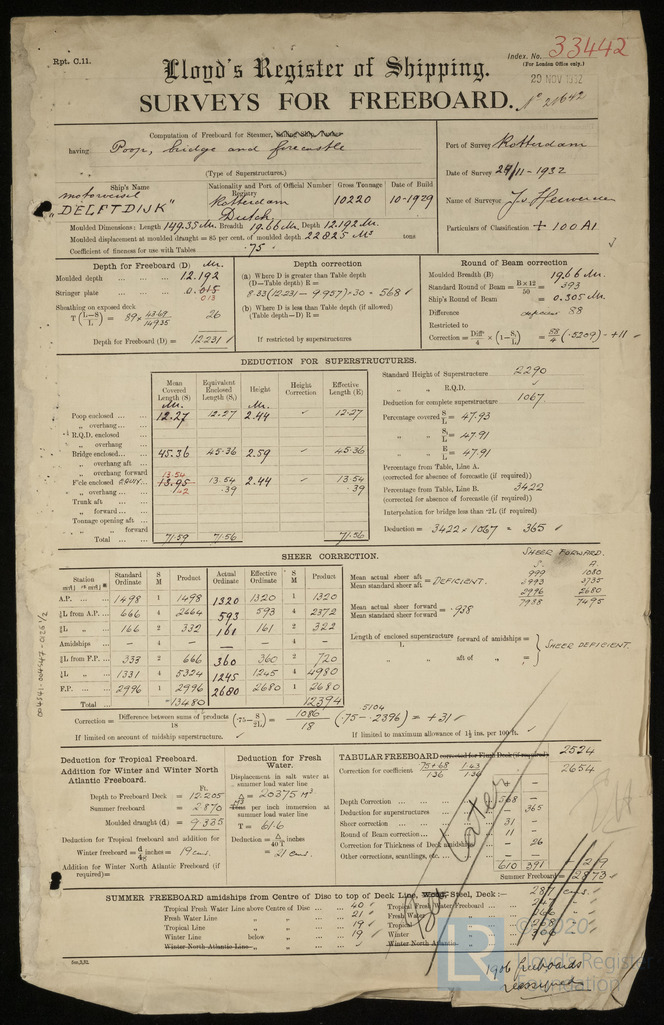 Rpt. C.11.
Index. No. 33442
(For London Office only.)
29 NOV 1932
Lloyd's Register of Shipping.
SURVEYS FOR FREEBOARD. No 21642
Computation of Freeboard for Steamer, Sailing Ship, Tanker
having Poop, bridge and forecastle
(Type of Superstructures.)
Port of Survey Rotterdam
Date of Survey 24/11-1932
Name of Surveyor
Particulars of Classification + 100 A1
Ship's Name
motorvessel
"DELFTDIJK"
Nationality and Port of Registry
Rotterdam
Dutch
Official Number
Gross Tonnage
10220
Date of Build
10-1929
Moulded Dimensions: Length 149.35 M. Breadth 19.66 M. Depth 12.192 M.
Moulded displacement at moulded draught = 85 per cent. of moulded depth 22825 M3 tons
Coefficient of fineness for use with Tables .75
Depth for Freeboard (D) M.
Moulded depth ... ... 12.192
Stringer plate ... ... 0.015
0.13
Sheathing on exposed deck
T (L-S/L) = 89 × 4369/14935 26
Depth for Freeboard (D) = 12231
Depth correction
(a) Where D is greater than Table depth
(D—Table depth) R =
8.33 (12.231 - 9.957) × 30 = 568
(b) Where D is less than Table depth (if allowed)
(Table depth—D) R =
If restricted by superstructures
Round of Beam correction
Moulded Breadth (B) 19.66 M.
Standard Round of Beam = B×12/50 = 393
Ship's Round of Beam = 0.305 M.
Difference 88
Restricted to
Correction = Diffce/4 × (1 - S1/L) = 88/4 (.5209) = +11
DEDUCTION FOR SUPERSTRUCTURES.
Mean Covered Length (S) Equivalent Enclosed Length (S1) Height Height Correction Effective Length (E)
M. M.
Poop enclosed ... ... 12.27 12.27 2.44 12.27
„ overhang ...
R.Q.D. enclosed
„ overhang
Bridge enclosed... ... 45.36 45.36 2.59 45.36
„ overhang aft ...
„ overhang forward
F'cle enclosed 13.54 13.95 13.54 2.44 13.54
„ overhang ... .39 .39
Trunk aft ...
„ forward ...
Tonnage opening aft ...
„ „ forward
Total ... ... 71.59 71.56 71.56
Standard Height of Superstructure 2290
„ „ R.Q.D.
Deduction for complete superstructure 1067
Percentage covered S/L = 47.93
„ „ S1/L = 47.91
„ „ E/L = 47.91
Percentage from Table, Line A.
(corrected for absence of forecastle (if required))
Percentage from Table, Line B. 3422
(corrected for absence of forecastle (if required))
Interpolation for bridge less than ·2L (if required)
Deduction = 3422 × 1067 = 365
SHEER CORRECTION.
Station Standard Ordinate S M Product Actual Ordinate Effective Ordinate S M Product
A.P. ... ... 1498 1 1498 1320 1320 1 1320
⅙L from A.P. ... 666 4 2664 593 593 4 2372
⅓L „ 166 2 332 161 161 2 322
Amidships ... – 4 – – 4 –
⅓L from F.P. ... 333 2 666 360 360 2 720
⅙L „ 1331 4 5324 1245 1245 4 4980
F.P. ... ... 2996 1 2996 2680 2680 1 2680
Total ... 13480 12394
Mean actual sheer aft / Mean standard sheer aft = DEFICIENT.
Mean actual sheer forward / Mean standard sheer forward = .938
SHEER FORWARD.
S. A.
999 1080
3993 3735
2996 2680
7988 7495
Length of enclosed superstructure / L forward of amidships =
„ „ aft of „ =
SHEER DEFICIENT.
Correction = Difference between sums of products / 18 (·75 - S/2L) = 1086/18 (.75 - .2396) = +31
5104
If limited on account of midship superstructure.
If limited to maximum allowance of 1½ ins. per 100 ft.
Deduction for Tropical Freeboard.
Addition for Winter and Winter North Atlantic Freeboard.
Ft.
Depth to Freeboard Deck = 12.205
Summer freeboard = 2.870
Moulded draught (d) = 9.335
Deduction for Tropical freeboard and addition for
Winter freeboard = d/48 inches = 19 cms.
Addition for Winter North Atlantic Freeboard (if required)=
Deduction for Fresh Water.
Displacement in salt water at summer load water line
Δ = 20375 M3
Tons per inch immersion at summer load water line
T = 61.6
Deduction = Δ/40T inches
= 21 cms.
TABULAR FREEBOARD corrected for Flush Deck (if required) 2524
Correction for coefficient 75+68/1.36 1.43/1.36 2654
Depth Correction ... 568 –
Deduction for superstructures ... – 365
Sheer correction ... 31 –
Round of Beam correction ... 11
Correction for Thickness of Deck amidships – 26
Other corrections, scantlings, etc. ... – –
610 391 + 219
Summer Freeboard = 2873
SUMMER FREEBOARD amidships from Centre of Disc to top of Deck Line, Wood, Steel, Deck :— 287 cms.
Tropical Fresh Water Line above Centre of Disc ... 40
Fresh Water Line „ „ 21
Tropical Line „ „ 19
Winter Line below „ 19
Winter North Atlantic Line „ „
Tropical Fresh Water Freeboard ... 247
Fresh Water „ 266
Tropical „ 268
Winter „ 306
Winter North Atlantic „
See Later
1906 freeboards
reassigned
5m,3,32.
004541-004547-0126 1/2
© 2020
Lloyd's Register
Foundation
LR